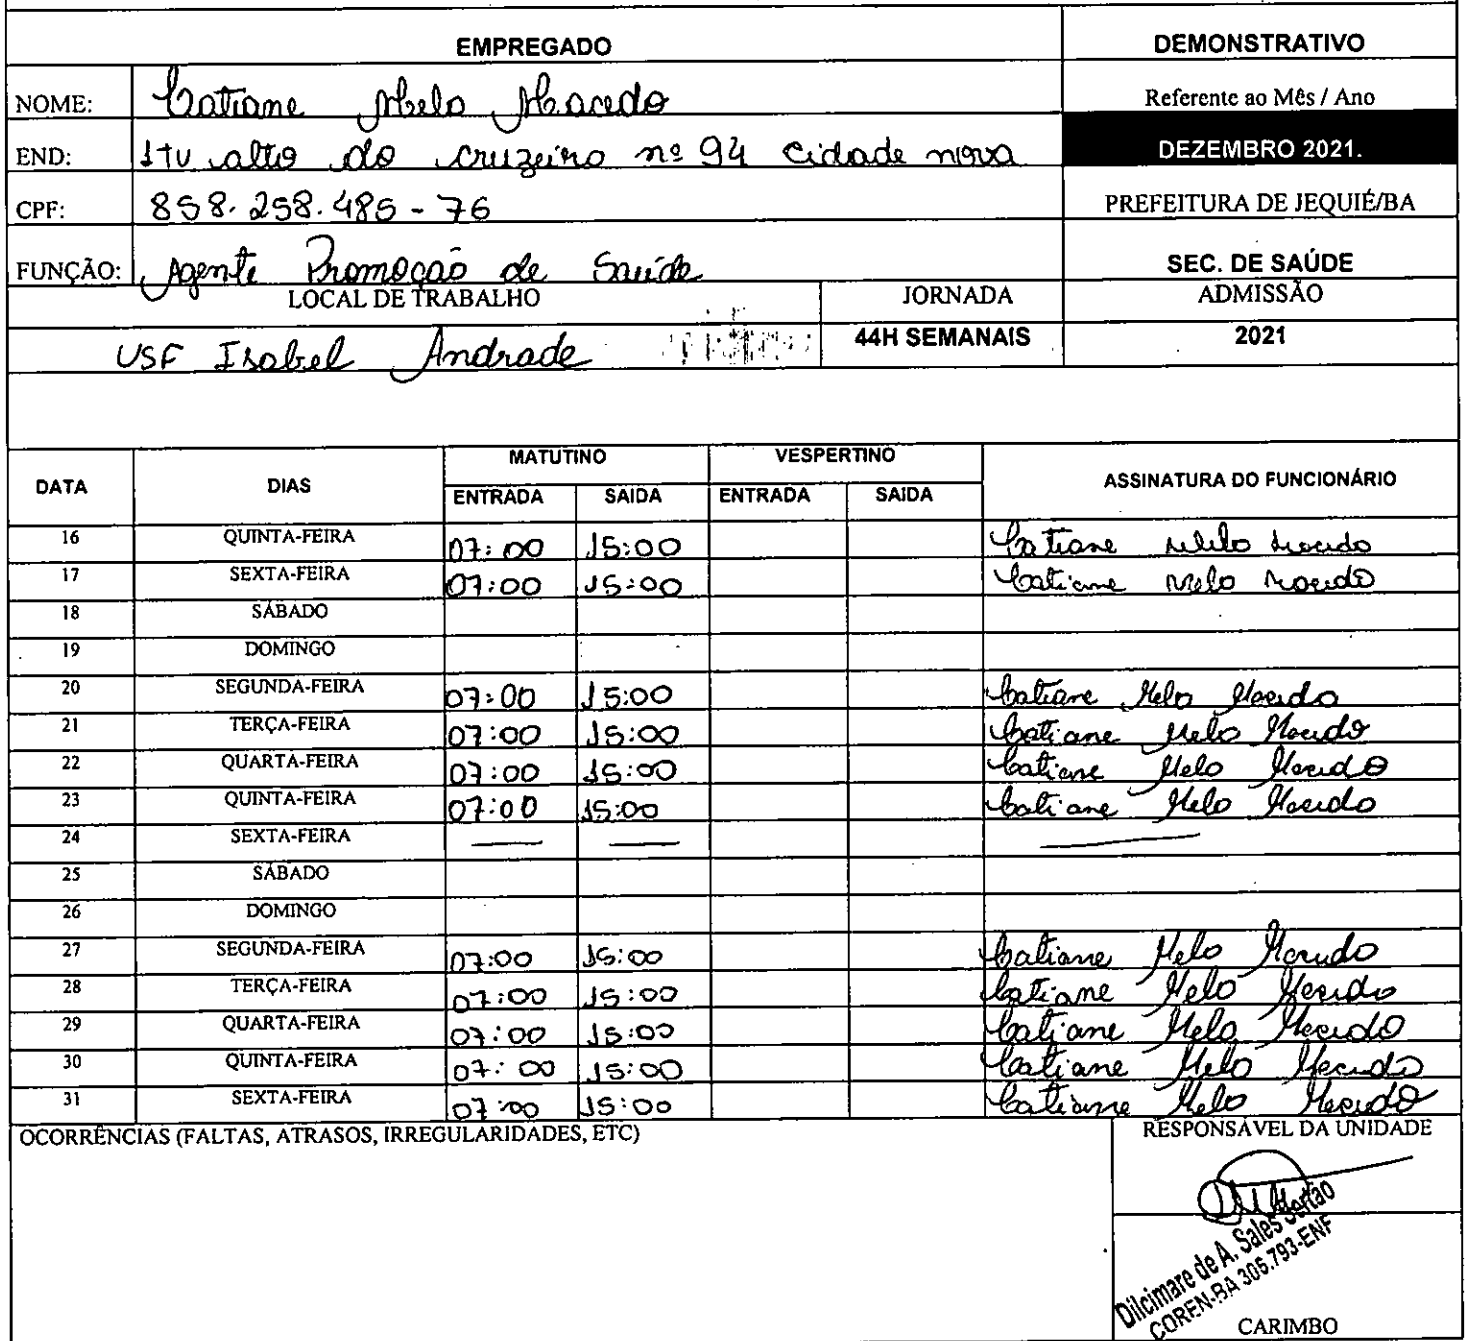 EMPREGADO DEMONSTRATIVO
NOME: Catiane Melo Macedo Referente ao Mês / Ano
END: 1tv alto do cruzeiro nº 94 cidade nova DEZEMBRO 2021.
CPF: 858.258.485-76 PREFEITURA DE JEQUIÉ/BA
FUNÇÃO: Agente Promoção de Saúde SEC. DE SAÚDE
LOCAL DE TRABALHO JORNADA ADMISSÃO
USF Isabel Andrade 44H SEMANAIS 2021
MATUTINO VESPERTINO
DATA DIAS ASSINATURA DO FUNCIONÁRIO
ENTRADA SAIDA ENTRADA SAIDA
16 QUINTA-FEIRA 07:00 15:00 Catiane Melo Macedo
17 SEXTA-FEIRA 07:00 15:00 Catiane Melo Macedo
18 SÁBADO
19 DOMINGO
20 SEGUNDA-FEIRA 07:00 15:00 Catiane Melo Macedo
21 TERÇA-FEIRA 07:00 15:00 Catiane Melo Macedo
22 QUARTA-FEIRA 07:00 15:00 Catiane Melo Macedo
23 QUINTA-FEIRA 07:00 15:00 Catiane Melo Macedo
24 SEXTA-FEIRA — — —
25 SÁBADO
26 DOMINGO
27 SEGUNDA-FEIRA 07:00 15:00 Catiane Melo Macedo
28 TERÇA-FEIRA 07:00 15:00 Catiane Melo Macedo
29 QUARTA-FEIRA 07:00 15:00 Catiane Melo Macedo
30 QUINTA-FEIRA 07:00 15:00 Catiane Melo Macedo
31 SEXTA-FEIRA 07:00 15:00 Catiane Melo Macedo
OCORRÊNCIAS (FALTAS, ATRASOS, IRREGULARIDADES, ETC) RESPONSÁVEL DA UNIDADE
Dilcimare de A. Sales Sertão
COREN-BA 305.793-ENF
CARIMBO